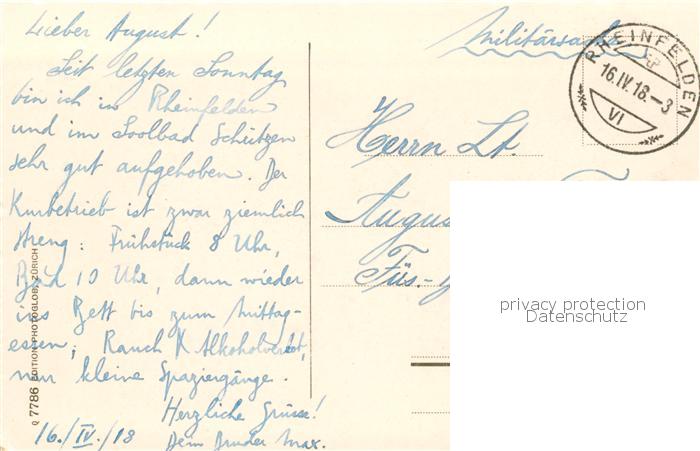 Lieber August!
Seit letzten Sonntag
bin ich in Rheinfelden
und im Soolbad Schützen
sehr gut aufgehoben. Der
Kurbetrieb ist zwar ziemlich
streng: Frühstück 8 Uhr,
Bad 10 Uhr, dann wieder
ins Bett bis zum Mittag-
essen, Rauch & Alkoholverbot,
nur kleine Spaziergänge.
Herzliche Grüsse!
16./IV./18 Dein Bruder Max.
Q 7786 EDITION PHOTOGLOB, ZÜRICH
Militärsache
RHEINFELDEN
16.IV.18.–3
VI
Herrn Lt.
Augus
Füs.-
privacy protection
Datenschutz